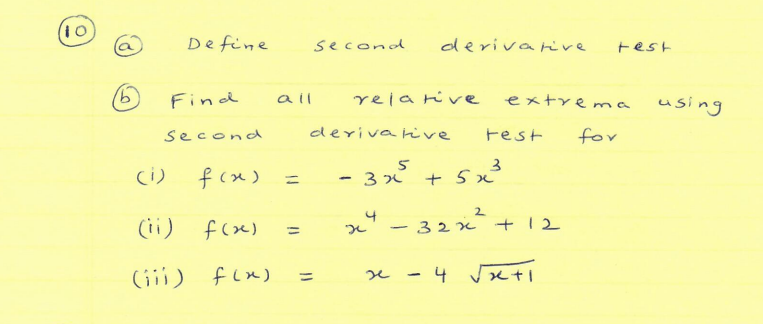 (10) (a) Define second derivative test
(b) Find all relative extrema using
second derivative test for
(i) f(x) = -3x⁵ + 5x³
(ii) f(x) = x⁴ - 32x² + 12
(iii) f(x) = x - 4 √(x+1)